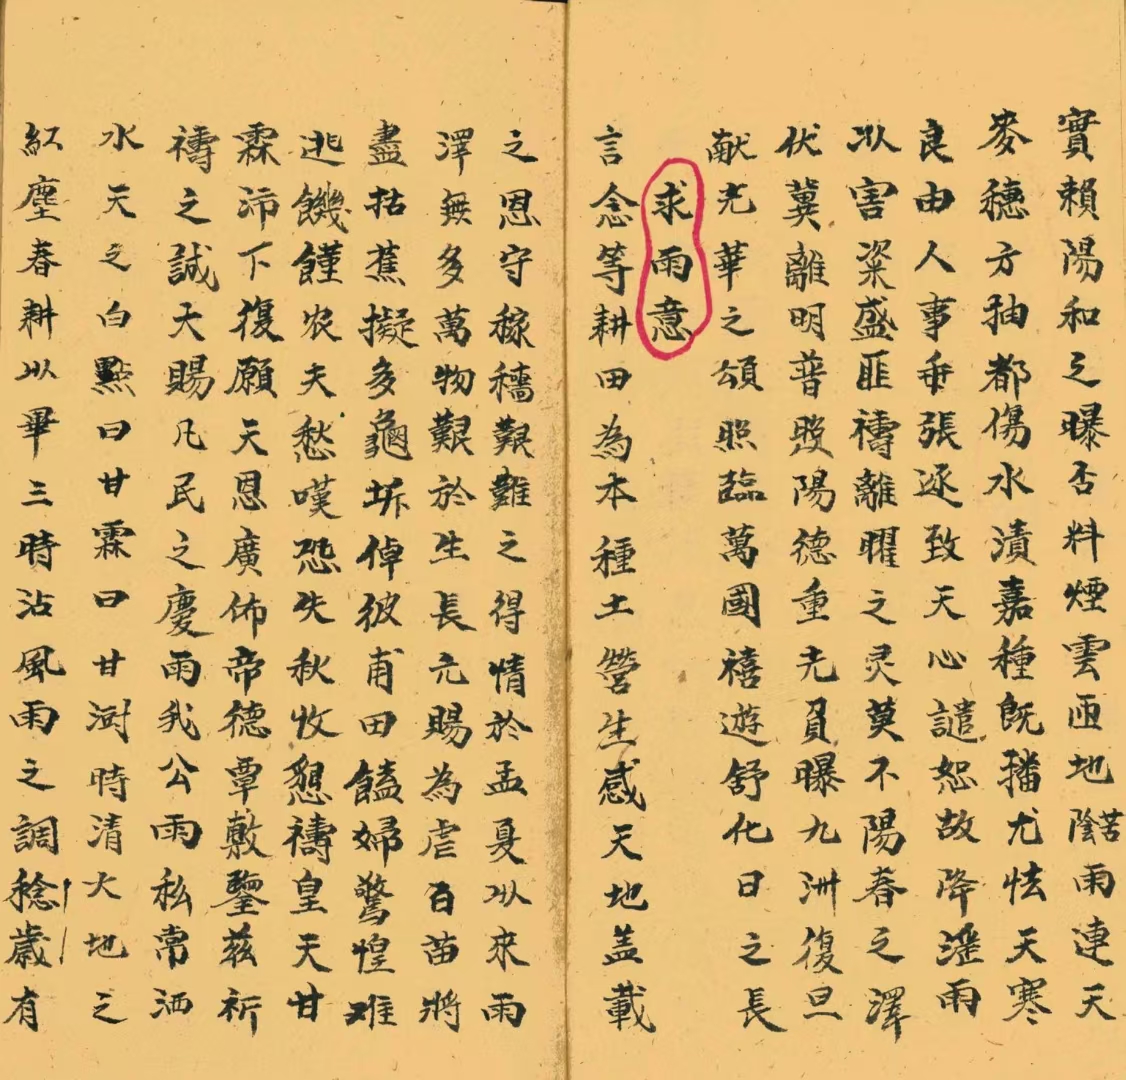 實賴陽和之曝否料煙雲匝地陰苦雨連天
麥穗方抽都傷水漬嘉種既播尤怯天寒
良由人事乖張逐致天心譴恕故降滛雨
以害粢盛匪禱離曜之灵莫不陽春之澤
伏冀離明普照陽德重光負曝九洲復旦
献光華之頌照臨萬國禧遊舒化日之長
求雨意
言念等耕田為本種土營生感天地盖載
之恩守稼穡艱難之得情於孟夏以來雨
澤無多萬物艱於生長亢賜為虐百苗將
盡枯蕉擬多龜坼倬彼甫田饁婦驚惶难
逃饑饉农夫愁嘆恐失秋收懇禱皇天甘
霖沛下復願天恩廣佈帝德覃敷鑒兹祈
禱之誠天賜凡民之慶雨我公雨私常洒
水天之白點曰甘霖曰甘澍時清大地之
紅塵春耕以畢三時沾風雨之調稔歲有